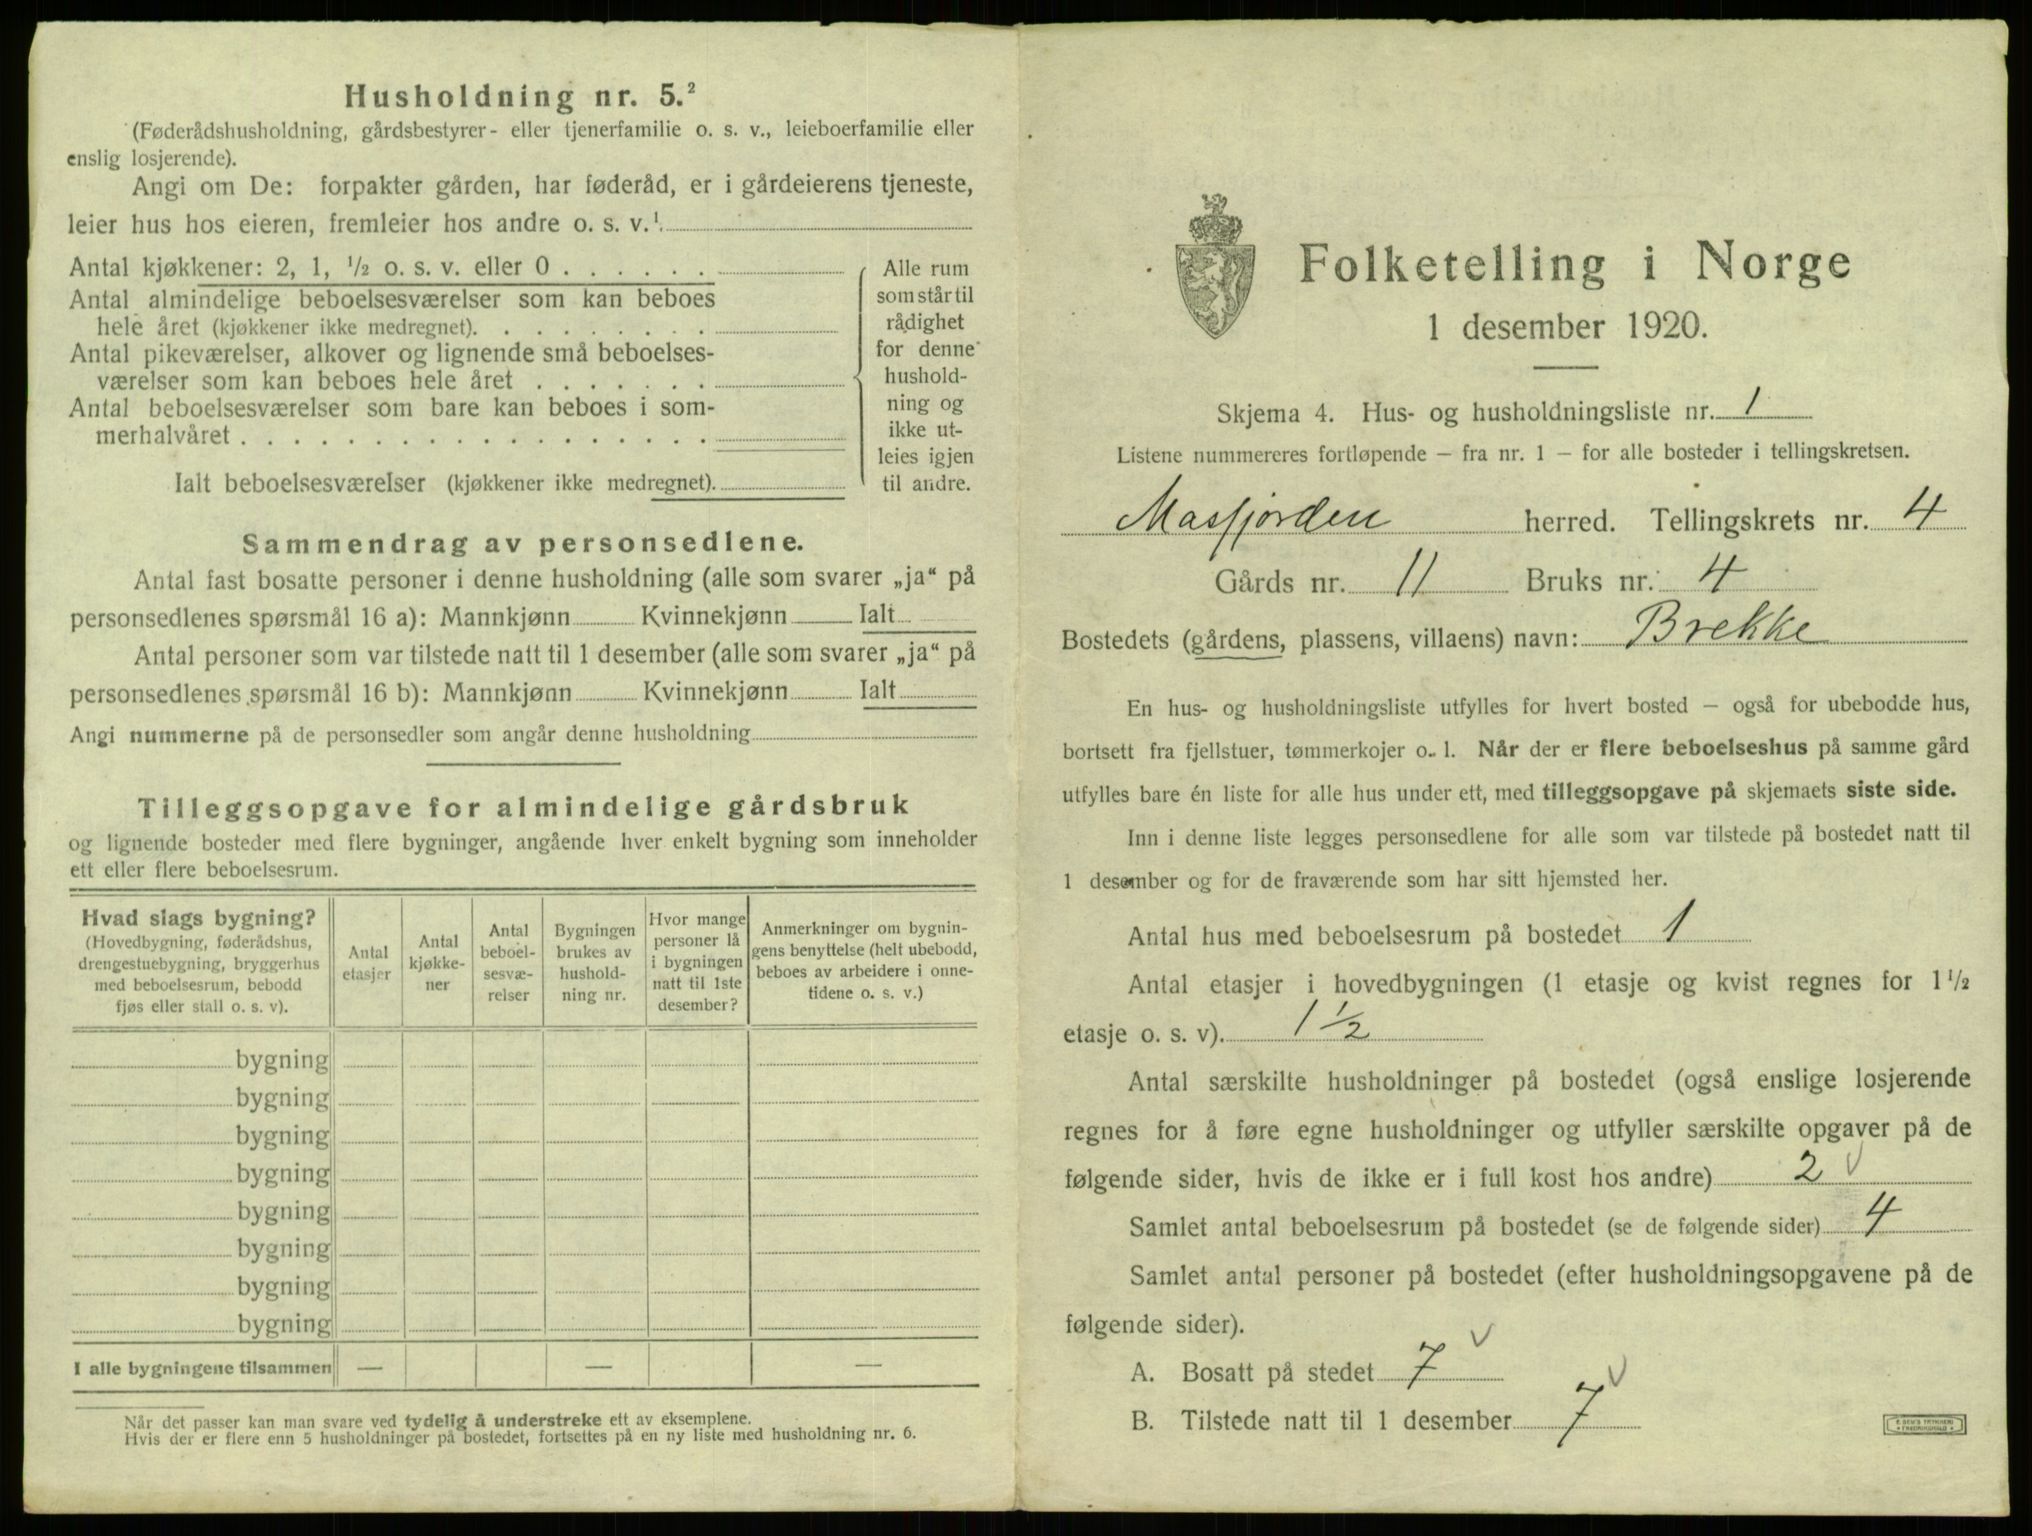 Husholdning nr. 5.²
(Føderådshusholdning, gårdsbestyrer- eller tjenerfamilie o. s. v., leieboerfamilie eller
enslig losjerende).
Angi om De: forpakter gården, har føderåd, er i gårdeierens tjeneste,
leier hus hos eieren, fremleier hos andre o. s. v.¹
Antal kjøkkener: 2, 1, ½ o. s. v. eller 0 . . . . . .
Antal almindelige beboelsesværelser som kan beboes
hele året (kjøkkener ikke medregnet). . . . . . . . .
Antal pikeværelser, alkover og lignende små beboelses-
værelser som kan beboes hele året . . . . . . .
Antal beboelsesværelser som bare kan beboes i som-
merhalvåret . . . . . . . . . . . . . . . . . .
Ialt beboelsesværelser (kjøkkener ikke medregnet).
Alle rum
som står til
rådighet
for denne
hushold-
ning og
ikke ut-
leies igjen
til andre.
Sammendrag av personsedlene.
Antal fast bosatte personer i denne husholdning (alle som svarer „ja“ på
personsedlenes spørsmål 16 a): Mannkjønn Kvinnekjønn Ialt
Antal personer som var tilstede natt til 1 desember (alle som svarer „ja“ på
personsedlenes spørsmål 16 b): Mannkjønn Kvinnekjønn Ialt
Angi nummerne på de personsedler som angår denne husholdning
Tilleggsopgave for almindelige gårdsbruk
og lignende bosteder med flere bygninger, angående hver enkelt bygning som inneholder
ett eller flere beboelsesrum.
Hvad slags bygning?
(Hovedbygning, føderådshus,
drengestuebygning, bryggerhus
med beboelsesrum, bebodd
fjøs eller stall o. s. v).
Antal
etasjer
Antal
kjøkke-
ner
Antal
beboel-
sesvæ-
relser
Bygningen
brukes av
hushold-
ning nr.
Hvor mange
personer lå
i bygningen
natt til 1ste
desember?
Anmerkninger om bygnin-
gens benyttelse (helt ubebodd,
beboes av arbeidere i onne-
tidene o. s. v.)
bygning
bygning
bygning
bygning
bygning
bygning
bygning
bygning
I alle bygningene tilsammen — — —
Når det passer kan man svare ved tydelig å understreke ett av eksemplene.
Hvis der er flere enn 5 husholdninger på bostedet, fortsettes på en ny liste med husholdning nr. 6.
Folketelling i Norge
1 desember 1920.
Skjema 4. Hus- og husholdningsliste nr. 1
Listene nummereres fortløpende — fra nr. 1 — for alle bosteder i tellingskretsen.
Masfjorden herred. Tellingskrets nr. 4
Gårds nr. 11 Bruks nr. 4
Bostedets (gårdens, plassens, villaens) navn: Brekke
En hus- og husholdningsliste utfylles for hvert bosted — også for ubebodde hus,
bortsett fra fjellstuer, tømmerkojer o. l. Når der er flere beboelseshus på samme gård
utfylles bare én liste for alle hus under ett, med tilleggsopgave på skjemaets siste side.
Inn i denne liste legges personsedlene for alle som var tilstede på bostedet natt til
1 desember og for de fraværende som har sitt hjemsted her.
Antal hus med beboelsesrum på bostedet 1
Antal etasjer i hovedbygningen (1 etasje og kvist regnes for 1½
etasje o. s. v). 1½
Antal særskilte husholdninger på bostedet (også enslige losjerende
regnes for å føre egne husholdninger og utfyller særskilte opgaver på de
følgende sider, hvis de ikke er i full kost hos andre) 2 v
Samlet antal beboelsesrum på bostedet (se de følgende sider) 4
Samlet antal personer på bostedet (efter husholdningsopgavene på de
følgende sider).
A. Bosatt på stedet 7 v
B. Tilstede natt til 1 desember 7 v